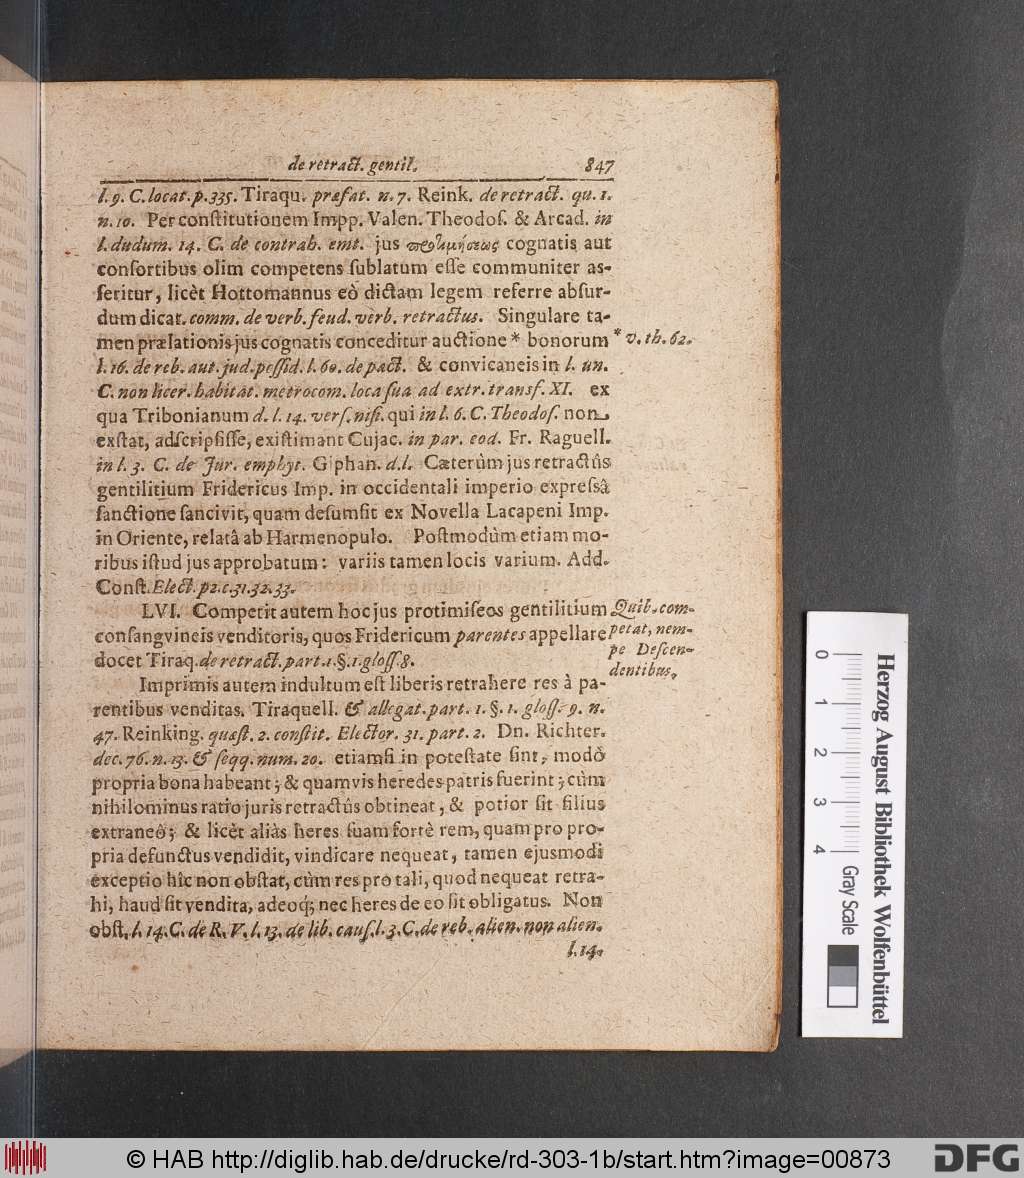 de retract. gentil. 847
l. 9. C. locat. p. 335. Tiraqu. præfat. n. 7. Reink. de retract. qu. 1.
n. 10. Per constitutionem Impp. Valen. Theodos. & Arcad. in
l. dudum. 14. C. de contrah. emt. jus προτιμήσεως cognatis aut
consortibus olim competens sublatum esse communiter as-
seritur, licèt Hottomannus eò dictam legem referre absur-
dum dicat. comm. de verb. feud. verb. retractus. Singulare ta-
men prælationis jus cognatis conceditur auctione * bonorum
* v. th. 62.
l. 16. de reb. aut. jud. possid. l. 60. de pact. & convicaneis in l. un.
C. non licer. habitat. metrocom. loca sua ad extr. transf. XI. ex
qua Tribonianum d. l. 14. vers. nisi. qui in l. 6. C. Theodos. non
exstat, adscripsisse, existimant Cujac. in par. eod. Fr. Raguell.
in l. 3. C. de Jur. emphyt. Giphan. d. l. Cæterùm jus retractûs
gentilitium Fridericus Imp. in occidentali imperio expressâ
sanctione sancivit, quam desumsit ex Novella Lacapeni Imp.
in Oriente, relatâ ab Harmenopulo. Postmodùm etiam mo-
ribus istud jus approbatum: variis tamen locis varium. Add.
Const. Elect. p 2. c. 31. 32. 33.
LVI. Competit autem hoc jus protimiseos gentilitium
consangvineis venditoris, quos Fridericum parentes appellare
docet Tiraq. de retract. part. 1. §. 1. gloss. 8.
Quib. com-
petat, nem-
pe Descen-
dentibus,
Imprimis autem indultum est liberis retrahere res à pa-
rentibus venditas. Tiraquell. & allegat. part. 1. §. 1. gloss. 9. n.
47. Reinking. quæst. 2. constit. Elector. 31. part. 2. Dn. Richter.
dec. 76. n. 13. & seqq. num. 20. etiamsi in potestate sint, modò
propria bona habeant; & quamvis heredes patris fuerint; cùm
nihilominus ratio juris retractûs obtineat, & potior sit filius
extraneo; & licèt aliàs heres suam fortè rem, quam pro pro-
pria defunctus vendidit, vindicare nequeat, tamen ejusmodi
exceptio hîc non obstat, cùm res pro tali, quod nequeat retra-
hi, haud sit vendita, adeoq; nec heres de eo sit obligatus. Non
obst. l. 14. C. de R. V. l. 13. de lib. caus. l. 3. C. de reb. alien. non alien.
l. 14.
0 1 2 3 4
Gray Scale
Herzog August Bibliothek Wolfenbüttel
© HAB http://diglib.hab.de/drucke/rd-303-1b/start.htm?image=00873
DFG